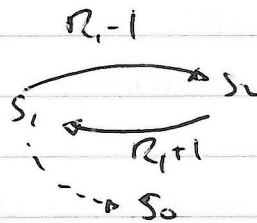 R₁-1
S₁
S₂
R₁+1
S₀